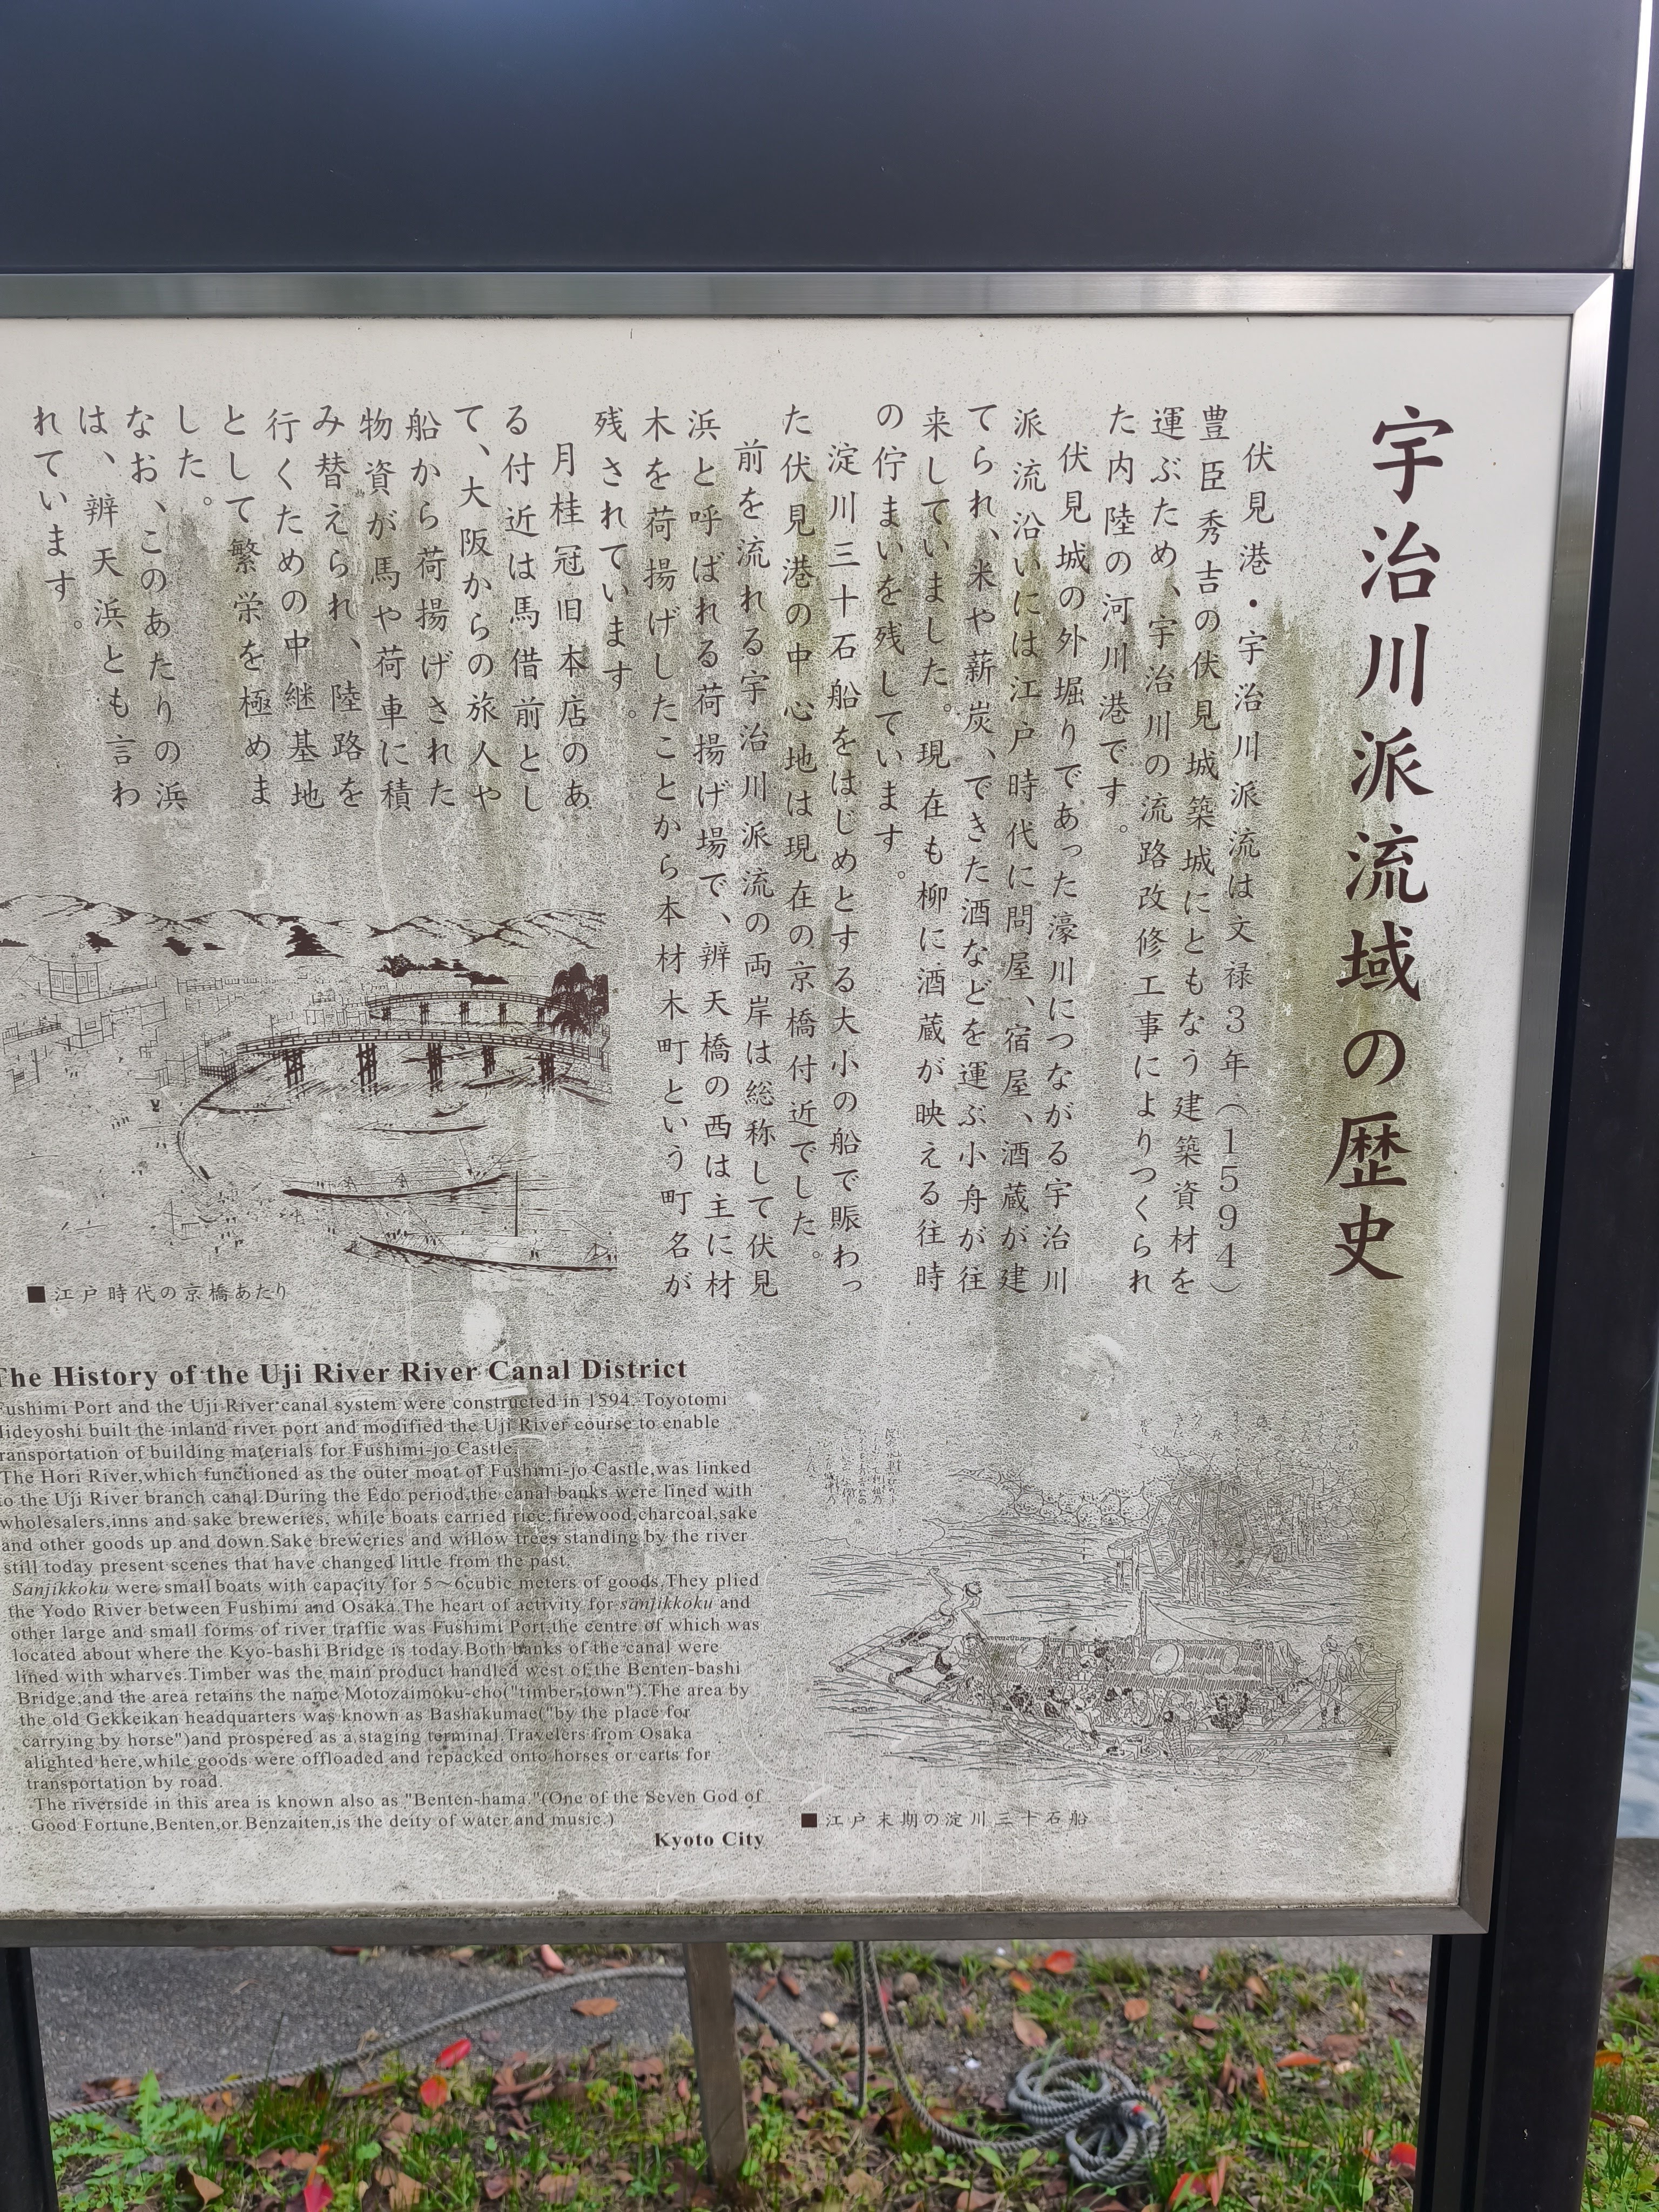 宇治川派流域の歴史
伏見港・宇治川派流は文禄3年(1594)
豊臣秀吉の伏見城築城にともなう建築資材を
運ぶため、宇治川の流路改修工事によりつくられ
た内陸の河川港です。
伏見城の外堀りであった濠川につながる宇治川
派流沿いには江戸時代に問屋、宿屋、酒蔵が建
てられ、米や薪炭、できた酒などを運ぶ小舟が往
来していました。現在も柳に酒蔵が映える往時
の佇まいを残しています。
淀川三十石船をはじめとする大小の船で賑わっ
た伏見港の中心地は現在の京橋付近でした。
前を流れる宇治川派流の両岸は総称して伏見
浜と呼ばれる荷揚げ場で、辨天橋の西は主に材
木を荷揚げしたことから本材木町という町名が
残されています。
月桂冠旧本店のあ
る付近は馬借前とし
て、大阪からの旅人や
船から荷揚げされた
物資が馬や荷車に積
み替えられ、陸路を
行くための中継基地
として繁栄を極めま
した。
なお、このあたりの浜
は、辨天浜とも言わ
れています。
■江戸時代の京橋あたり
The History of the Uji River River Canal District
Fushimi Port and the Uji River canal system were constructed in 1594. Toyotomi
Hideyoshi built the inland river port and modified the Uji River course to enable
transportation of building materials for Fushimi-jo Castle.
The Hori River,which functioned as the outer moat of Fushimi-jo Castle,was linked
to the Uji River branch canal.During the Edo period,the canal banks were lined with
wholesalers,inns and sake breweries, while boats carried rice,firewood,charcoal,sake
and other goods up and down.Sake breweries and willow trees standing by the river
still today present scenes that have changed little from the past.
Sanjikkoku were small boats with capacity for 5～6cubic meters of goods.They plied
the Yodo River between Fushimi and Osaka.The heart of activity for sanjikkoku and
other large and small forms of river traffic was Fushimi Port,the centre of which was
located about where the Kyo-bashi Bridge is today.Both banks of the canal were
lined with wharves.Timber was the main product handled west of the Benten-bashi
Bridge,and the area retains the name Motozaimoku-cho("timber-town").The area by
the old Gekkeikan headquarters was known as Bashakumae("by the place for
carrying by horse")and prospered as a staging terminal.Travelers from Osaka
alighted here,while goods were offloaded and repacked onto horses or carts for
transportation by road.
The riverside in this area is known also as "Benten-hama."(One of the Seven God of
Good Fortune,Benten,or Benzaiten,is the deity of water and music.)
Kyoto City
■江戸末期の淀川三十石船